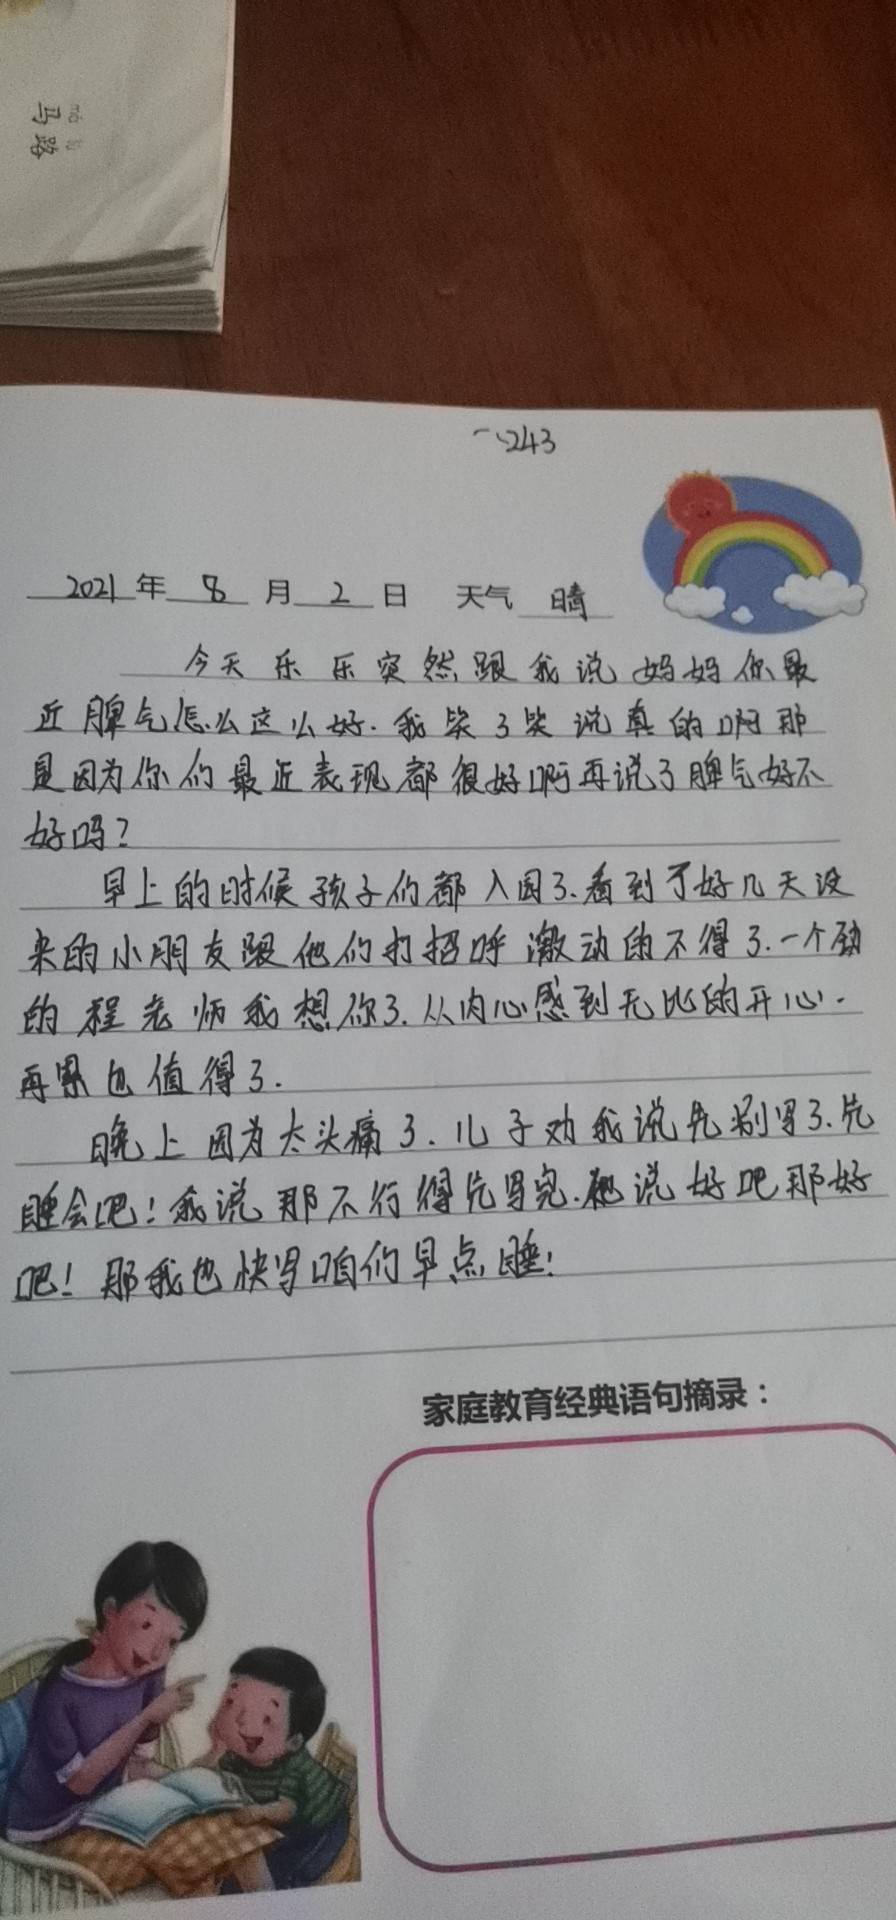 马路
243
2021年 8 月 2 日 天气 晴
今天乐乐突然跟我说妈妈你最
近脾气怎么这么好.我笑了笑说真的啊那
是因为你们最近表现都很好啊再说了脾气好不
好吗?
早上的时候孩子们都入园了.看到了好几天没
来的小朋友跟他们打招呼激动的不得了.一个劲
的程老师我想你了.从内心感到无比的开心.
再累也值得了.
晚上因为太头痛了.儿子劝我说先别写了.先
睡会吧!我说那不行得先写完.他说好吧那好
吧!那我也快写咱们早点睡!
家庭教育经典语句摘录：